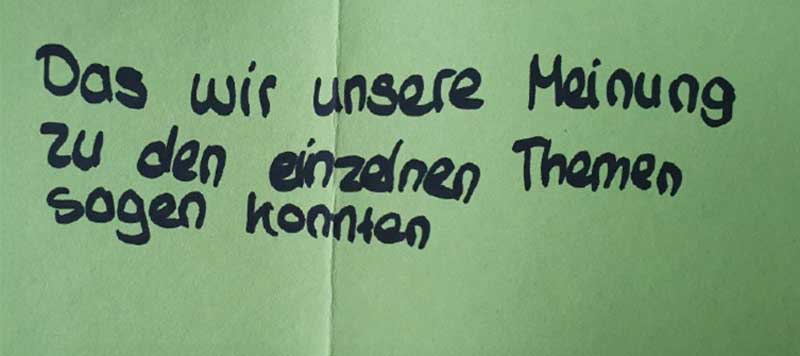 Das wir unsere Meinung
zu den einzelnen Themen
sagen konnten